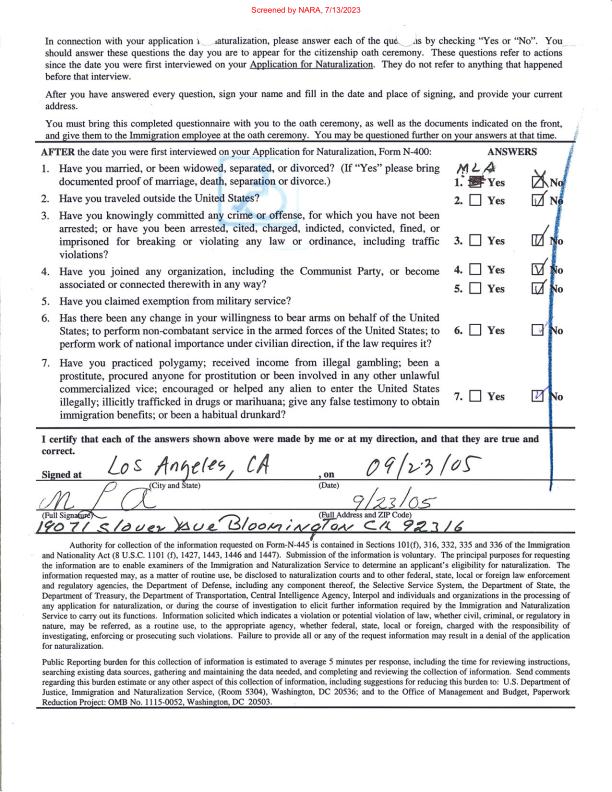 Screened by NARA, 7/13/2023
In connection with your application naturalization, please answer each of the by checking "Yes or "No". You
should answer these questions the day you are to appear for the citizenship oath ceremony. These questions refer to actions
since the date you were first interviewed on your Application for Naturalization. They do not refer to anything that happened
before that interview.
After you have answered every question, sign your name and fill in the date and place of signing, and provide your current
address.
You must bring this completed questionnaire with you to the oath ceremony, as well as the documents indicated on the front,
and give them to the Immigration employee at the oath ceremony. You may be questioned further on your answers at that time.
AFTER the date you were first interviewed on your Application for Naturalization, Form N-400: ANSWERS
1. Have you married, or been widowed, separated, or divorced? (If "Yes" please bring MLA
documented proof of marriage, death, separation or divorce.) 1. Yes No
2. Have you traveled outside the United States? 2. Yes No
3. Have you knowingly committed any crime or offense, for which you have not been
arrested; or have you been arrested, cited, charged, indicted, convicted, fined, or
imprisoned for breaking or violating any law or ordinance, including traffic 3. Yes No
violations?
4. Have you joined any organization, including the Communist Party, or become 4. Yes No
associated or connected therewith in any way? 5. Yes No
5. Have you claimed exemption from military service?
6. Has there been any change in your willingness to bear arms on behalf of the United
States; to perform non-combatant service in the armed forces of the United States; to 6. Yes No
perform work of national importance under civilian direction, if the law requires it?
7. Have you practiced polygamy; received income from illegal gambling; been a
prostitute, procured anyone for prostitution or been involved in any other unlawful
commercialized vice; encouraged or helped any alien to enter the United States 7. Yes No
illegally; illicitly trafficked in drugs or marihuana; give any false testimony to obtain
immigration benefits; or been a habitual drunkard?
I certify that each of the answers shown above were made by me or at my direction, and that they are true and
correct.
Signed at Los Angeles, CA , on 09/23/05
(City and State) (Date)
9/23/05
(Full Signature) (Full Address and ZIP Code)
19071 Slover Ave Bloomington CA 92316
Authority for collection of the information requested on Form-N-445 is contained in Sections 101(f), 316, 332, 335 and 336 of the Immigration
and Nationality Act (8 U.S.C. 1101 (f), 1427, 1443, 1446 and 1447). Submission of the information is voluntary. The principal purposes for requesting
the information are to enable examiners of the Immigration and Naturalization Service to determine an applicant's eligibility for naturalization. The
information requested may, as a matter of routine use, be disclosed to naturalization courts and to other federal, state, local or foreign law enforcement
and regulatory agencies, the Department of Defense, including any component thereof, the Selective Service System, the Department of State, the
Department of Treasury, the Department of Transportation, Central Intelligence Agency, Interpol and individuals and organizations in the processing of
any application for naturalization, or during the course of investigation to elicit further information required by the Immigration and Naturalization
Service to carry out its functions. Information solicited which indicates a violation or potential violation of law, whether civil, criminal, or regulatory in
nature, may be referred, as a routine use, to the appropriate agency, whether federal, state, local or foreign, charged with the responsibility of
investigating, enforcing or prosecuting such violations. Failure to provide all or any of the request information may result in a denial of the application
for naturalization.
Public Reporting burden for this collection of information is estimated to average 5 minutes per response, including the time for reviewing instructions,
searching existing data sources, gathering and maintaining the data needed, and completing and reviewing the collection of information. Send comments
regarding this burden estimate or any other aspect of this collection of information, including suggestions for reducing this burden to: U.S. Department of
Justice, Immigration and Naturalization Service, (Room 5304), Washington, DC 20536; and to the Office of Management and Budget, Paperwork
Reduction Project: OMB No. 1115-0052, Washington, DC 20503.